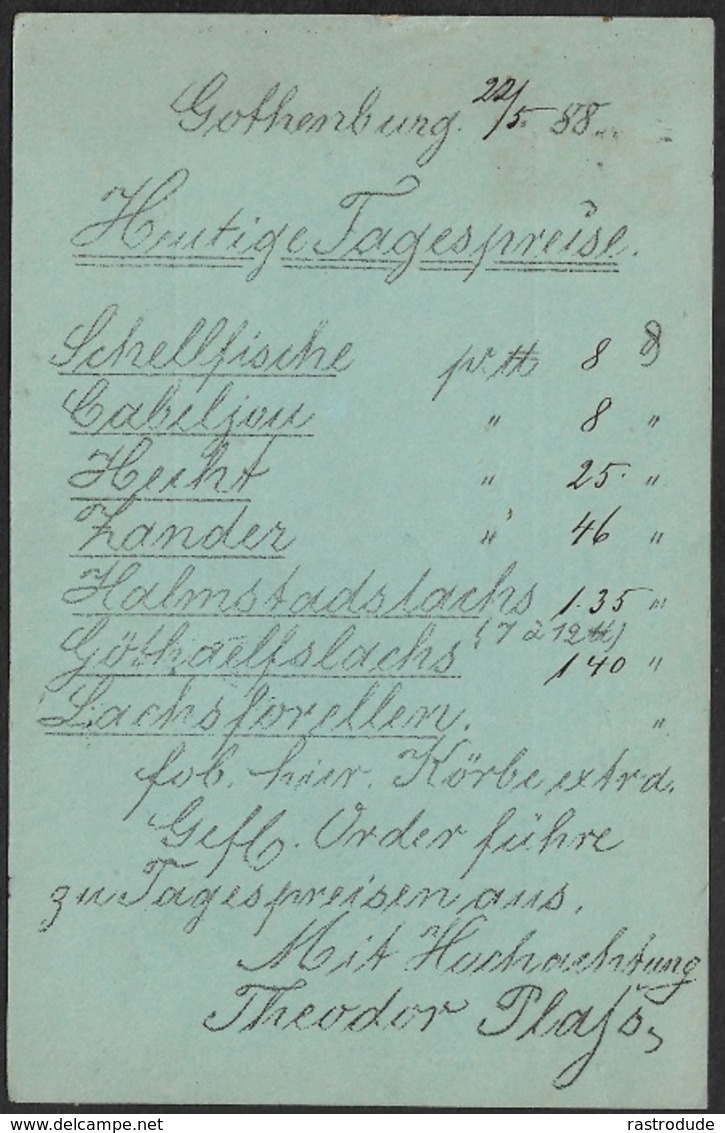 Gothenburg 22/5. 88.
Heutige Tagespreise.
Schellfische pr ℔ 8 ₰
Cabeljou " 8 "
Hecht " 25. "
Zander " 46 "
Halmstadslachs 1.35 "
(7 à 12 ℔)
Göthaelfslachs 140 "
Lachsforellen. "
fob. hier. Körbe extra.
Gefl. Order führe
zu Tagespreisen aus.
Mit Hochachtung
Theodor Plass
DELCAMPE.NET
rastrodude